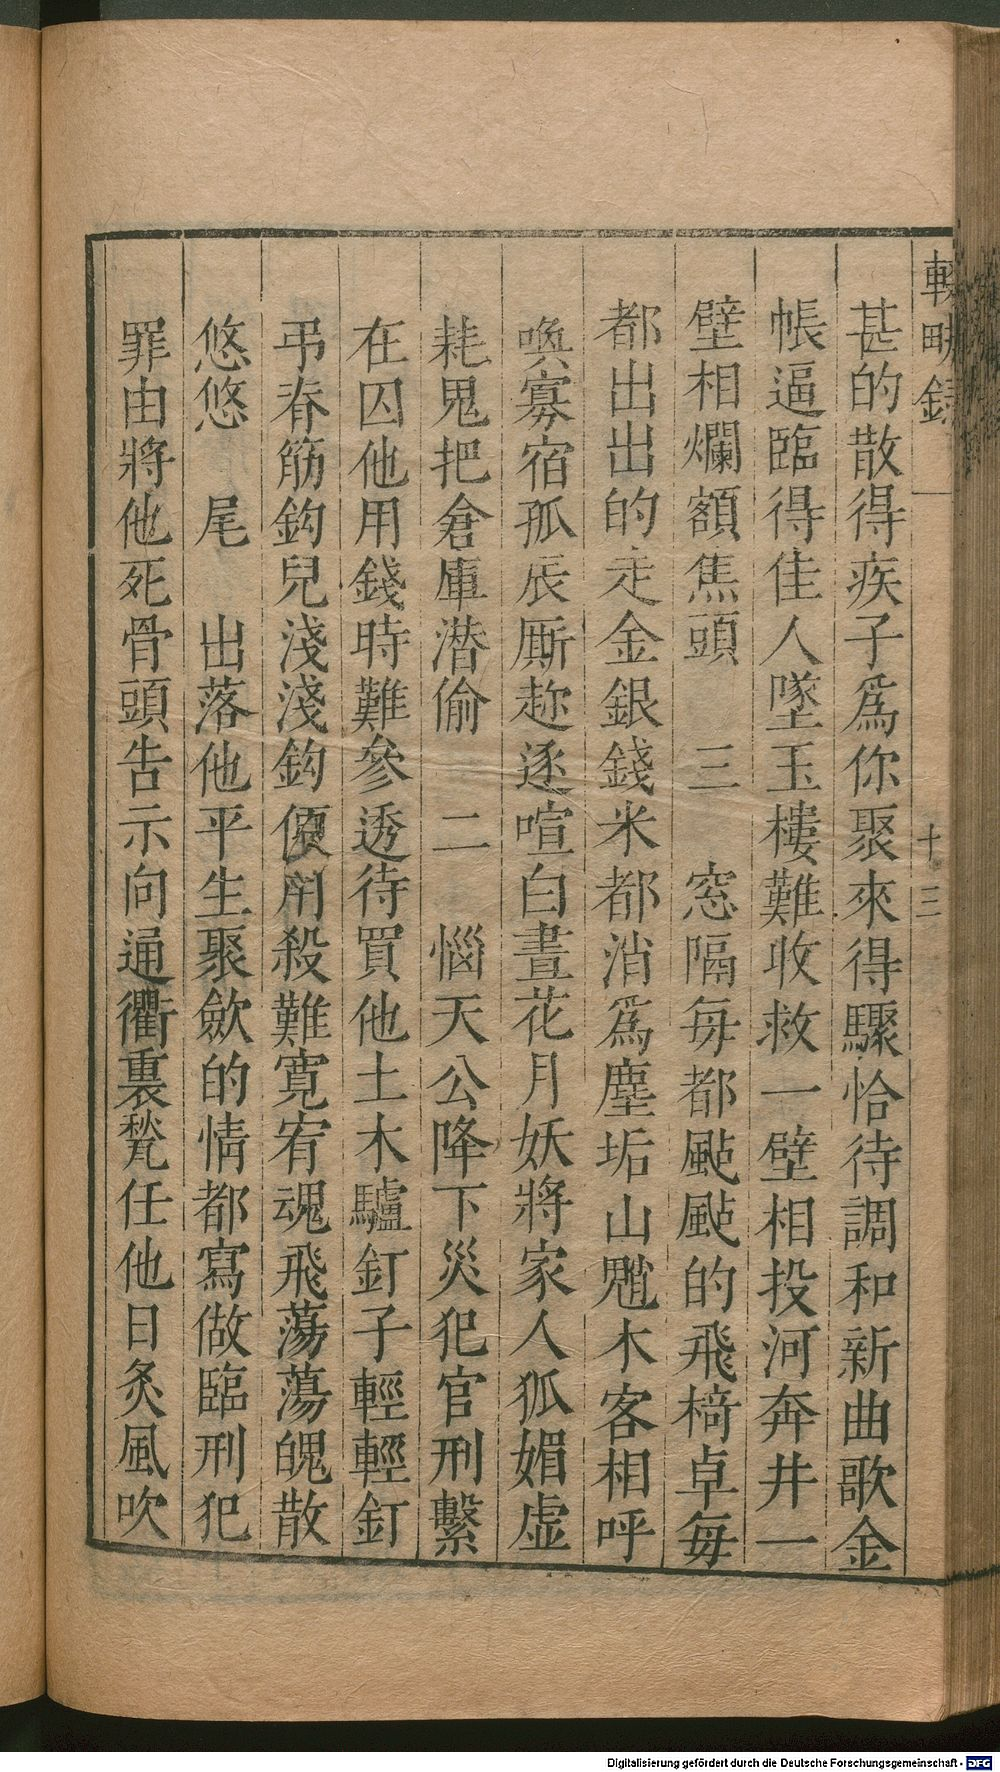 輟畊錄 一 十三
甚的散得疾子爲你聚來得驟恰待調和新曲歌金
帳逼臨得佳人墜玉樓難收救一壁相投河奔井一
壁相爛額焦頭 三 窓隔每都颭颭的飛椅卓每
都出出的走金銀錢米都消爲塵垢山魈木客相呼
喚寡宿孤辰厮趂逐喧白晝花月妖將家人狐媚虛
耗鬼把倉庫潜偷 二 惱天公降下災犯官刑繫
在囚他用錢時難參透待買他上木驢釘子輕輕釘
弔脊筋鈎兒淺淺鈎便用殺難寬宥魂飛蕩蕩魄散
悠悠 尾 出落他平生聚歛的情都寫做臨刑犯
罪由將他死骨頭告示向通衢裏甃任他日炙風吹
Digitalisierung gefördert durch die Deutsche Forschungsgemeinschaft - DFG